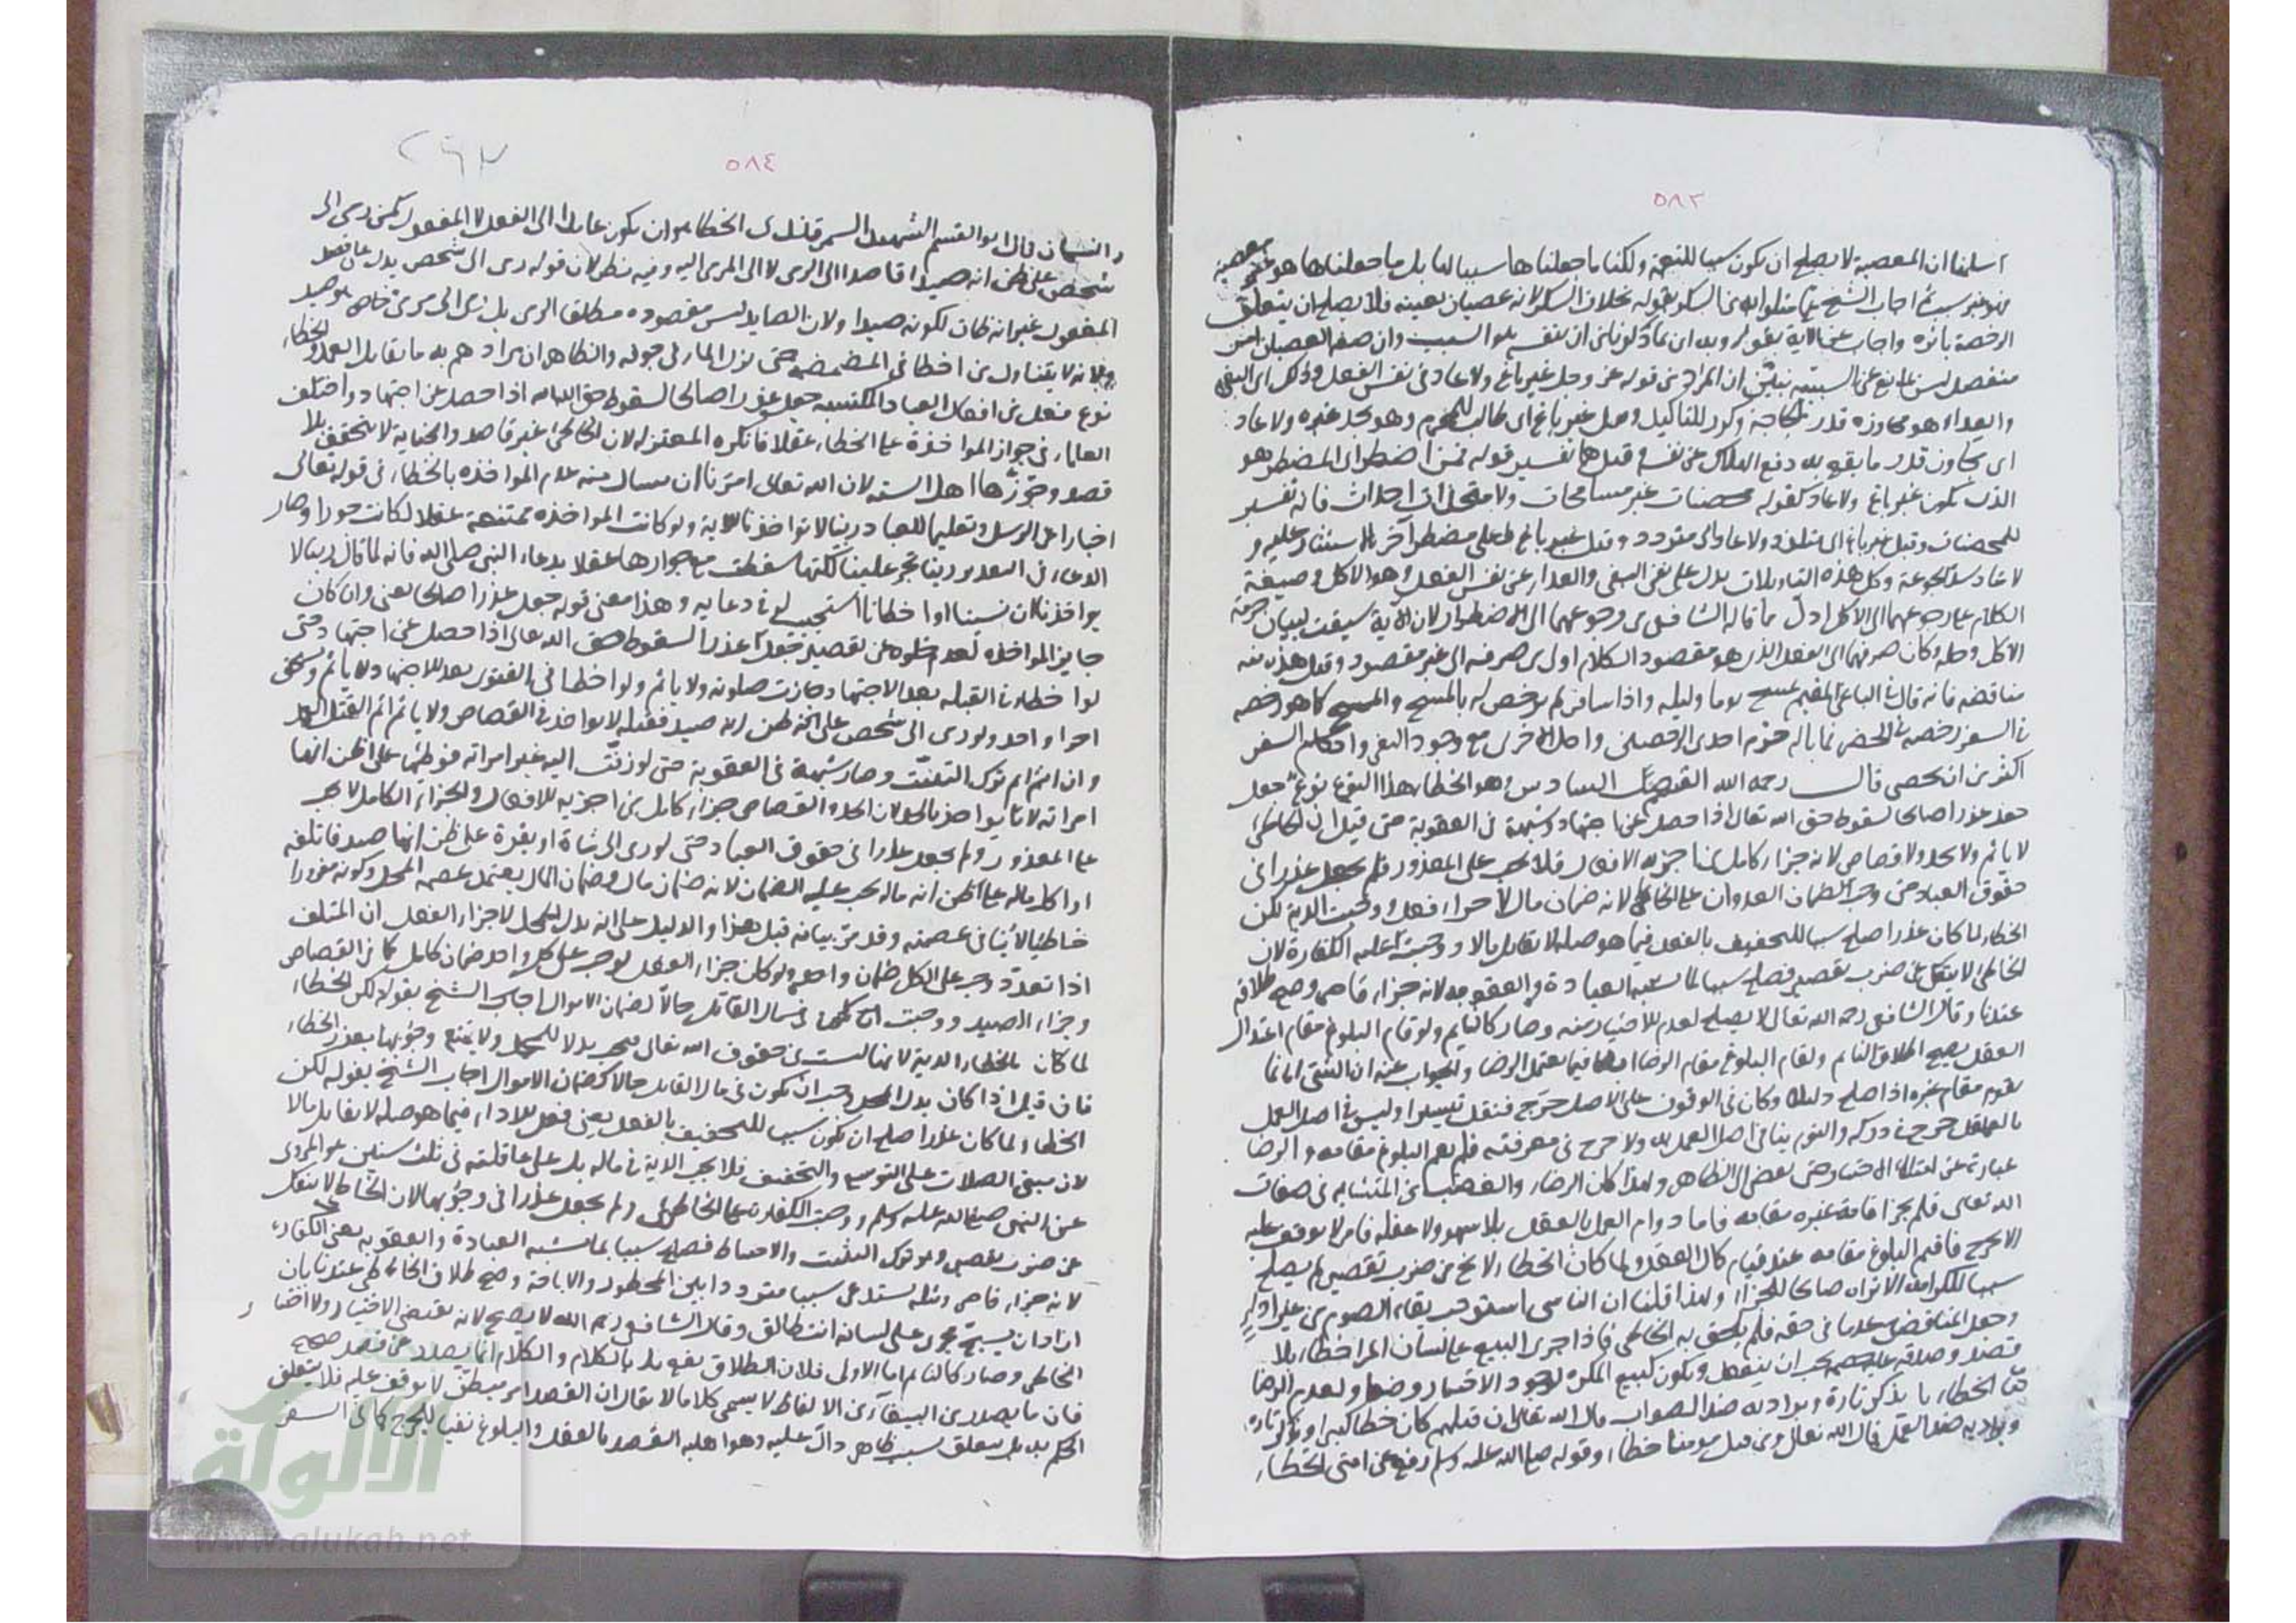 ٥٨٣
اسلمنا ان المعصية لا يصلح ان يكون سببا للنعمة ولكنا ما جعلناها سببا لها بل ما جعلناها هو معصية
الرخصة بأثره واجاب عن الآية بقوله
منفصل ليس ان المراد من قوله عز وجل غير باغ ولا عاد في نفس الفعل وذلك اي البغي
والعداء هو مجاوزة قدر الحاجة وكرر للتاكيد وقيل غير باغ اي طالب للمحرم وهو يجد غيره ولا عاد
اي يجاوز قدر ما يقع به دفع الهلاك عن نفسه وقيل هما تفسير قوله فمن اضطر اي المضطر هو
الذي يكون غير باغ ولا عاد كقوله محصنات غير مسافحات ولا متخذات اخدان فانه تفسير
للمحصنات وقيل غير باغ اي متلذذ ولا عاد اي متزود وقيل غير باغ على مضطر آخر بالاستئثار عليه و
لا عاد سد الجوعة وكل هذه التاويلات يدل على نفي البغي والعداء عن نفس الفعل وهو الاكل وصيغة
الكلام رجوعهما الى الاكل ادل مما قاله الشافعي من رجوعهما الى الاضطرار لان الآية سيقت لبيان حرمة
الاكل وحله وكان صرفهما الى الفعل الذي هو مقصود الكلام اولى من صرفه الى غير مقصود وقيل هذا منه
مناقضة فانه قال في الباغي المقيم يمسح يوما وليلة واذا سافر لم يرخص له بالمسح والمسح كما هو رخصة
في السفر رخصة في الحضر فما باله حرم احدى الرخصتين واحل الاخرى مع وجود البغي واحكام السفر
اكثر من ان تحصى قال رحمه الله الفصل السادس وهو الخطاء هذا النوع نوع جعل
جعل عذرا صالحا لسقوط حق الله تعالى اذا حصل عن اجتهاد وشبهة في العقوبة حتى قيل ان الخاطئ
لا يأثم ولا يحد ولا قصاص لانه جزاء كامل من اجزية الافعال فلا يجب على المعذور فلم يجعل عذرا في
حقوق العباد حتى وجب ضمان العدوان على الخاطئ لانه ضمان مال لا جزاء فعل ووجبت الدية لكن
الخطاء لما كان عذرا صلح سببا للتخفيف بالفعل فيما هو صلة لا تقابل مالا ووجبت عليه الكفارة لان
الخاطئ لا ينفك عن ضرب تقصير فصلح سببا لما يشبه العبادة والعقوبة لانه جزاء قاصر وصح طلاقه
عندنا وقال الشافعي رحمه الله تعالى لا يصلح لعدم الاختيار منه وصار كالنائم ولو قام البلوغ مقام اعتدال
العقل لصح طلاق النائم ولقام البلوغ مقام الرضا ايضا فيما يعتمل الرضا والجواب عنه ان الشئ انما
يقوم مقام غيره اذا صلح دليلا وكان في الوقوف على الاصل حرج فنقل تيسيرا وليس في اصل العمل
بالعقل حرج في دركه والنوم ينافي اصل العمل به ولا حرج في معرفته فلم يقم البلوغ مقامه والرضا
عبارة عن امتلاء الاختيار حتى يفضي الى الظاهر ولهذا كان الرضاء والغضب من المتشابه في صفات
الله تعالى فلم يجز اقامة غيره مقامه فاما دوام العمل بالعقل بلا سهو ولا غفلة فامر لا يوقف عليه
الا بحرج فاقيم البلوغ مقامه عند قيام كمال العقل ولما كان الخطاء لا يخ عن ضرب تقصير لم يصلح
سببا للكرامة الا تراه صالحا للجزاء ولهذا قلنا ان الناسي استوجب بقاء الصوم من غير اداء
وجعل المناقض عدما في حقه فلم يلحق به الخاطي فاذا جرى البيع على لسان المرء خطاء بلا
قصد وصدقه عليه خصمه يجب ان ينعقد ويكون كبيع المكره لوجود الاختيار وضعا ولعدم الرضا
الخطاء يذكر تارة ويراد به ضد الصواب قال الله تعالى ان قتلهم كان خطأ كبيرا ويذكر تارة
ويراد به ضد العمد قال الله تعالى ومن قتل مومنا خطاء وقوله صلى الله عليه وسلم رفع عن امتي الخطاء
٥٨٤
٢٩٣
والنسيان قال ابو القسم الشهيد السمرقندي الخطا هو ان يكون عامدا الى الفعل لا المفعول كمن رمى الى
شخص على ظن انه صيد قاصدا الى الرمي لا الى المرمى اليه وفيه نظر لان قوله رمى الى شخص يدل على قصد
المفعول غير انه ظان لكونه صيدا ولان الصايد ليس مقصوده مطلق الرمي بل رمى الى مرمى خاص هو صيد
ولانه لا يتناول من اخطا في المضمضة حتى نزل الماء في جوفه والظاهر ان مرادهم به ما يقابل العمد والخطاء
نوع فعل من افعال العباد المكتسبة جعل عذرا صالحا لسقوط حق الله اذا حصل عن اجتهاد واختلف
العلماء في جواز المواخذة على الخطاء عقلا فانكره المعتزلة لان الخاطئ غير قاصد والجناية لا تتحقق بلا
قصد وجوزها اهل السنة لان الله تعالى امرنا ان نسال منه عدم المواخذة بالخطاء في قوله تعالى
اخبارا عن الرسل وتعليما للعباد ربنا لا تواخذنا الاية ولو كانت المواخذة ممتنعة عقلا لكانت جورا وصار
الدعاء في التقدير ربنا لا تجر علينا لكنها سقطت مع جوازها عقلا بدعاء النبي صلى الله فانه لما قال ربنا لا
تواخذنا ان نسينا او اخطانا استجيب له في دعايه وهذا معنى قوله جعل عذرا صالحا يعني وان كان
جايز المواخذة لعدم خلوه عن تقصير جعل عذرا لسقوط حق الله تعالى اذا حصل عن اجتهاد حتى
لو اخطاء في القبلة بعد الاجتهاد جازت صلوته ولا ياثم ولو اخطا في الفتوى بعد الاجتهاد لا ياثم ويستحق
اجرا واحدا ولو رمى الى شخص على ظن انه صيد فقتله لا يواخذ في القصاص ولا ياثم اثم القتل العمد
وان اثم اثم ترك التثبت وصار شبهة في العقوبة حتى لو زفت اليه غير امراته فوطئها على ظن انها
امراته لا يواخذ بالحد لان الحد والقصاص جزاء كامل من اجزية الافعال والجزاء الكامل لا يجب
على المعذور ولم يجعل عذرا في حقوق العباد حتى لو رمى الى شاة او بقرة على ظن انها صيد فاتلفه
او اكل ماله على ظن انه ماله يجب عليه الضمان لانه ضمان مال وضمان المال يعتمل عصمة المحل وكونه معذورا
خاطئا لا ينافي عصمته وقد مر بيانه قبل هذا والدليل على انه بدل المحل لا جزاء الفعل ان المتلف
اذا تعدد وجب على الكل ضمان واحد ولو كان جزاء الفعل لوجب على كل واحد ضمان كامل كما في القصاص
وجزاء الصيد ووجبت في مال القاتل حالا لضمان الاموال اجاب الشيخ بقوله لكن الخطاء
لما كان بالخطاء الدية لانها ليست من حقوق الله تعالى بدلا للمحل ولا يمتنع وجوبها بعذر الخطاء
فان قيل اذا كان بدل المحل وجب ان يكون في مال القاتل حالا كضمان الاموال اجاب الشيخ بقوله لكن
الخطاء لما كان عذرا صلح ان يكون سببا للتخفيف بالفعل يعني فعل الاداء فيما هو صلة لا يقابل مالا
لان مبنى الصلات على التوسع والتخفيف فلا يجب الدية في ماله بل على عاقلته في ثلث سنين هو المروي
عن النبي صلى الله عليه وسلم ووجبت الكفارة على الخاطئ ولم يجعل عذرا في وجوبها لان الخاطئ لا ينفك
عن ضرب تقصير وهو ترك التثبت والاحتياط فصلح سببا لما يشبه العبادة والعقوبة يعني الكفارة
لانه جزاء قاصر ومثله يستدعي سببا مترددا بين المحظور والاباحة وصح طلاق الخاطي عندنا بان
اراد ان يسبح فجرى على لسانه انت طالق وقال الشافعي رحمه الله لا يصح لانه يقتضي الاختيار ولا اختيار
الخاطي وصار كالنائم اما الاولى فلان الطلاق يقع بالكلام والكلام انما يصدر عن قصد صحيح
فان ما يصدر من الببغاء من الالفاظ لا يسمى كلاما لا يقال ان القصد امر مبطن لا يوقف عليه فلا يتعلق
الحكم به بل يتعلق بسبب ظاهر دال عليه وهو اهلية القصد بالعقل والبلوغ نفيا للحرج كما في السفر
الألوكة
www.alukah.net